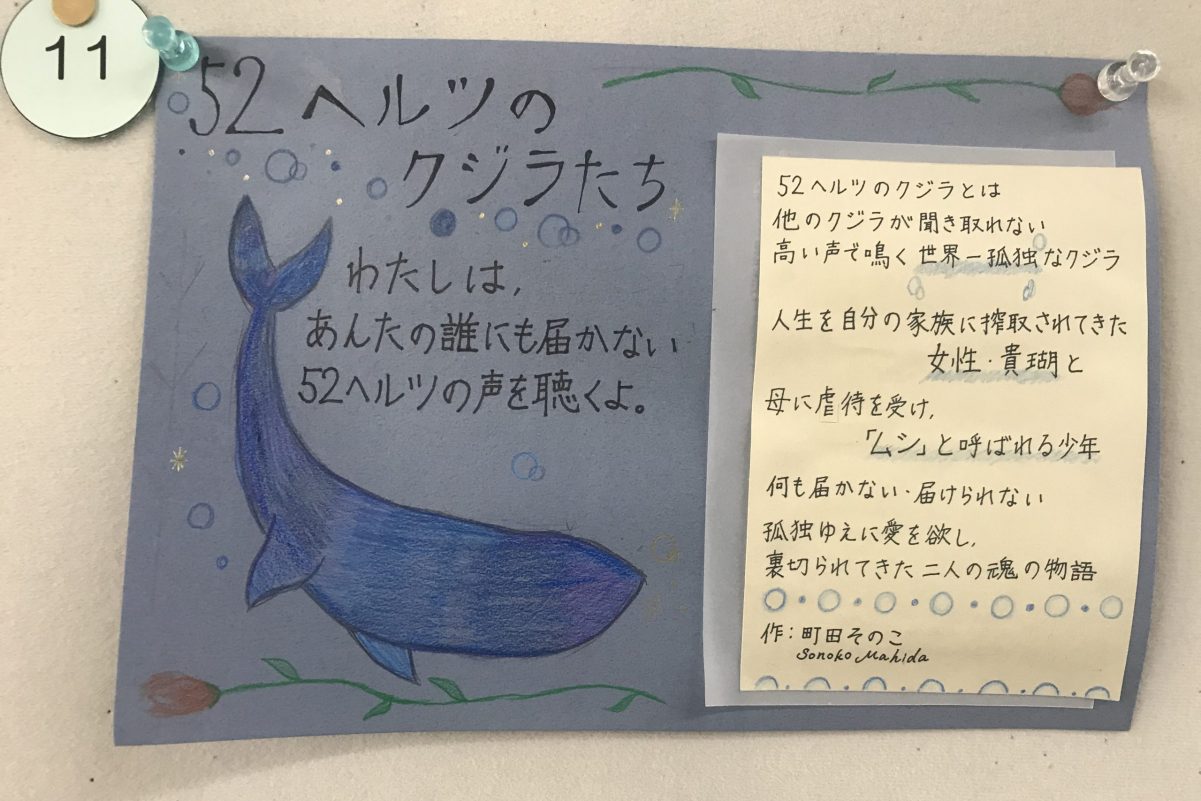 11
52ヘルツの
クジラたち
わたしは,
あんたの誰にも届かない
52ヘルツの声を聴くよ。
52ヘルツのクジラとは
他のクジラが聞き取れない
高い声で鳴く世界一孤独なクジラ
人生を自分の家族に搾取されてきた
女性・貴瑚と
母に虐待を受け,
「ムシ」と呼ばれる少年
何も届かない・届けられない
孤独ゆえに愛を欲し,
裏切られてきた二人の魂の物語
作:町田そのこ
Sonoko Mahida